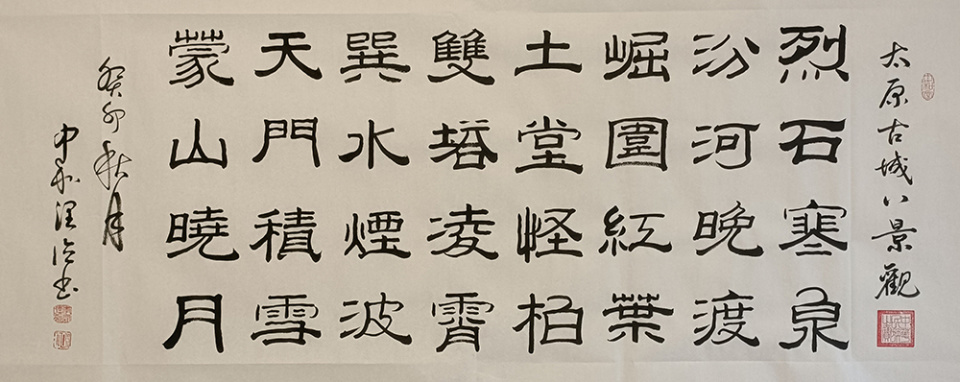 太原古城八景觀
烈石寒泉
汾河晚渡
崛圍紅葉
土堂怪柏
雙塔凌霄
巽水煙波
天門積雪
蒙山曉月
癸卯秋月
書